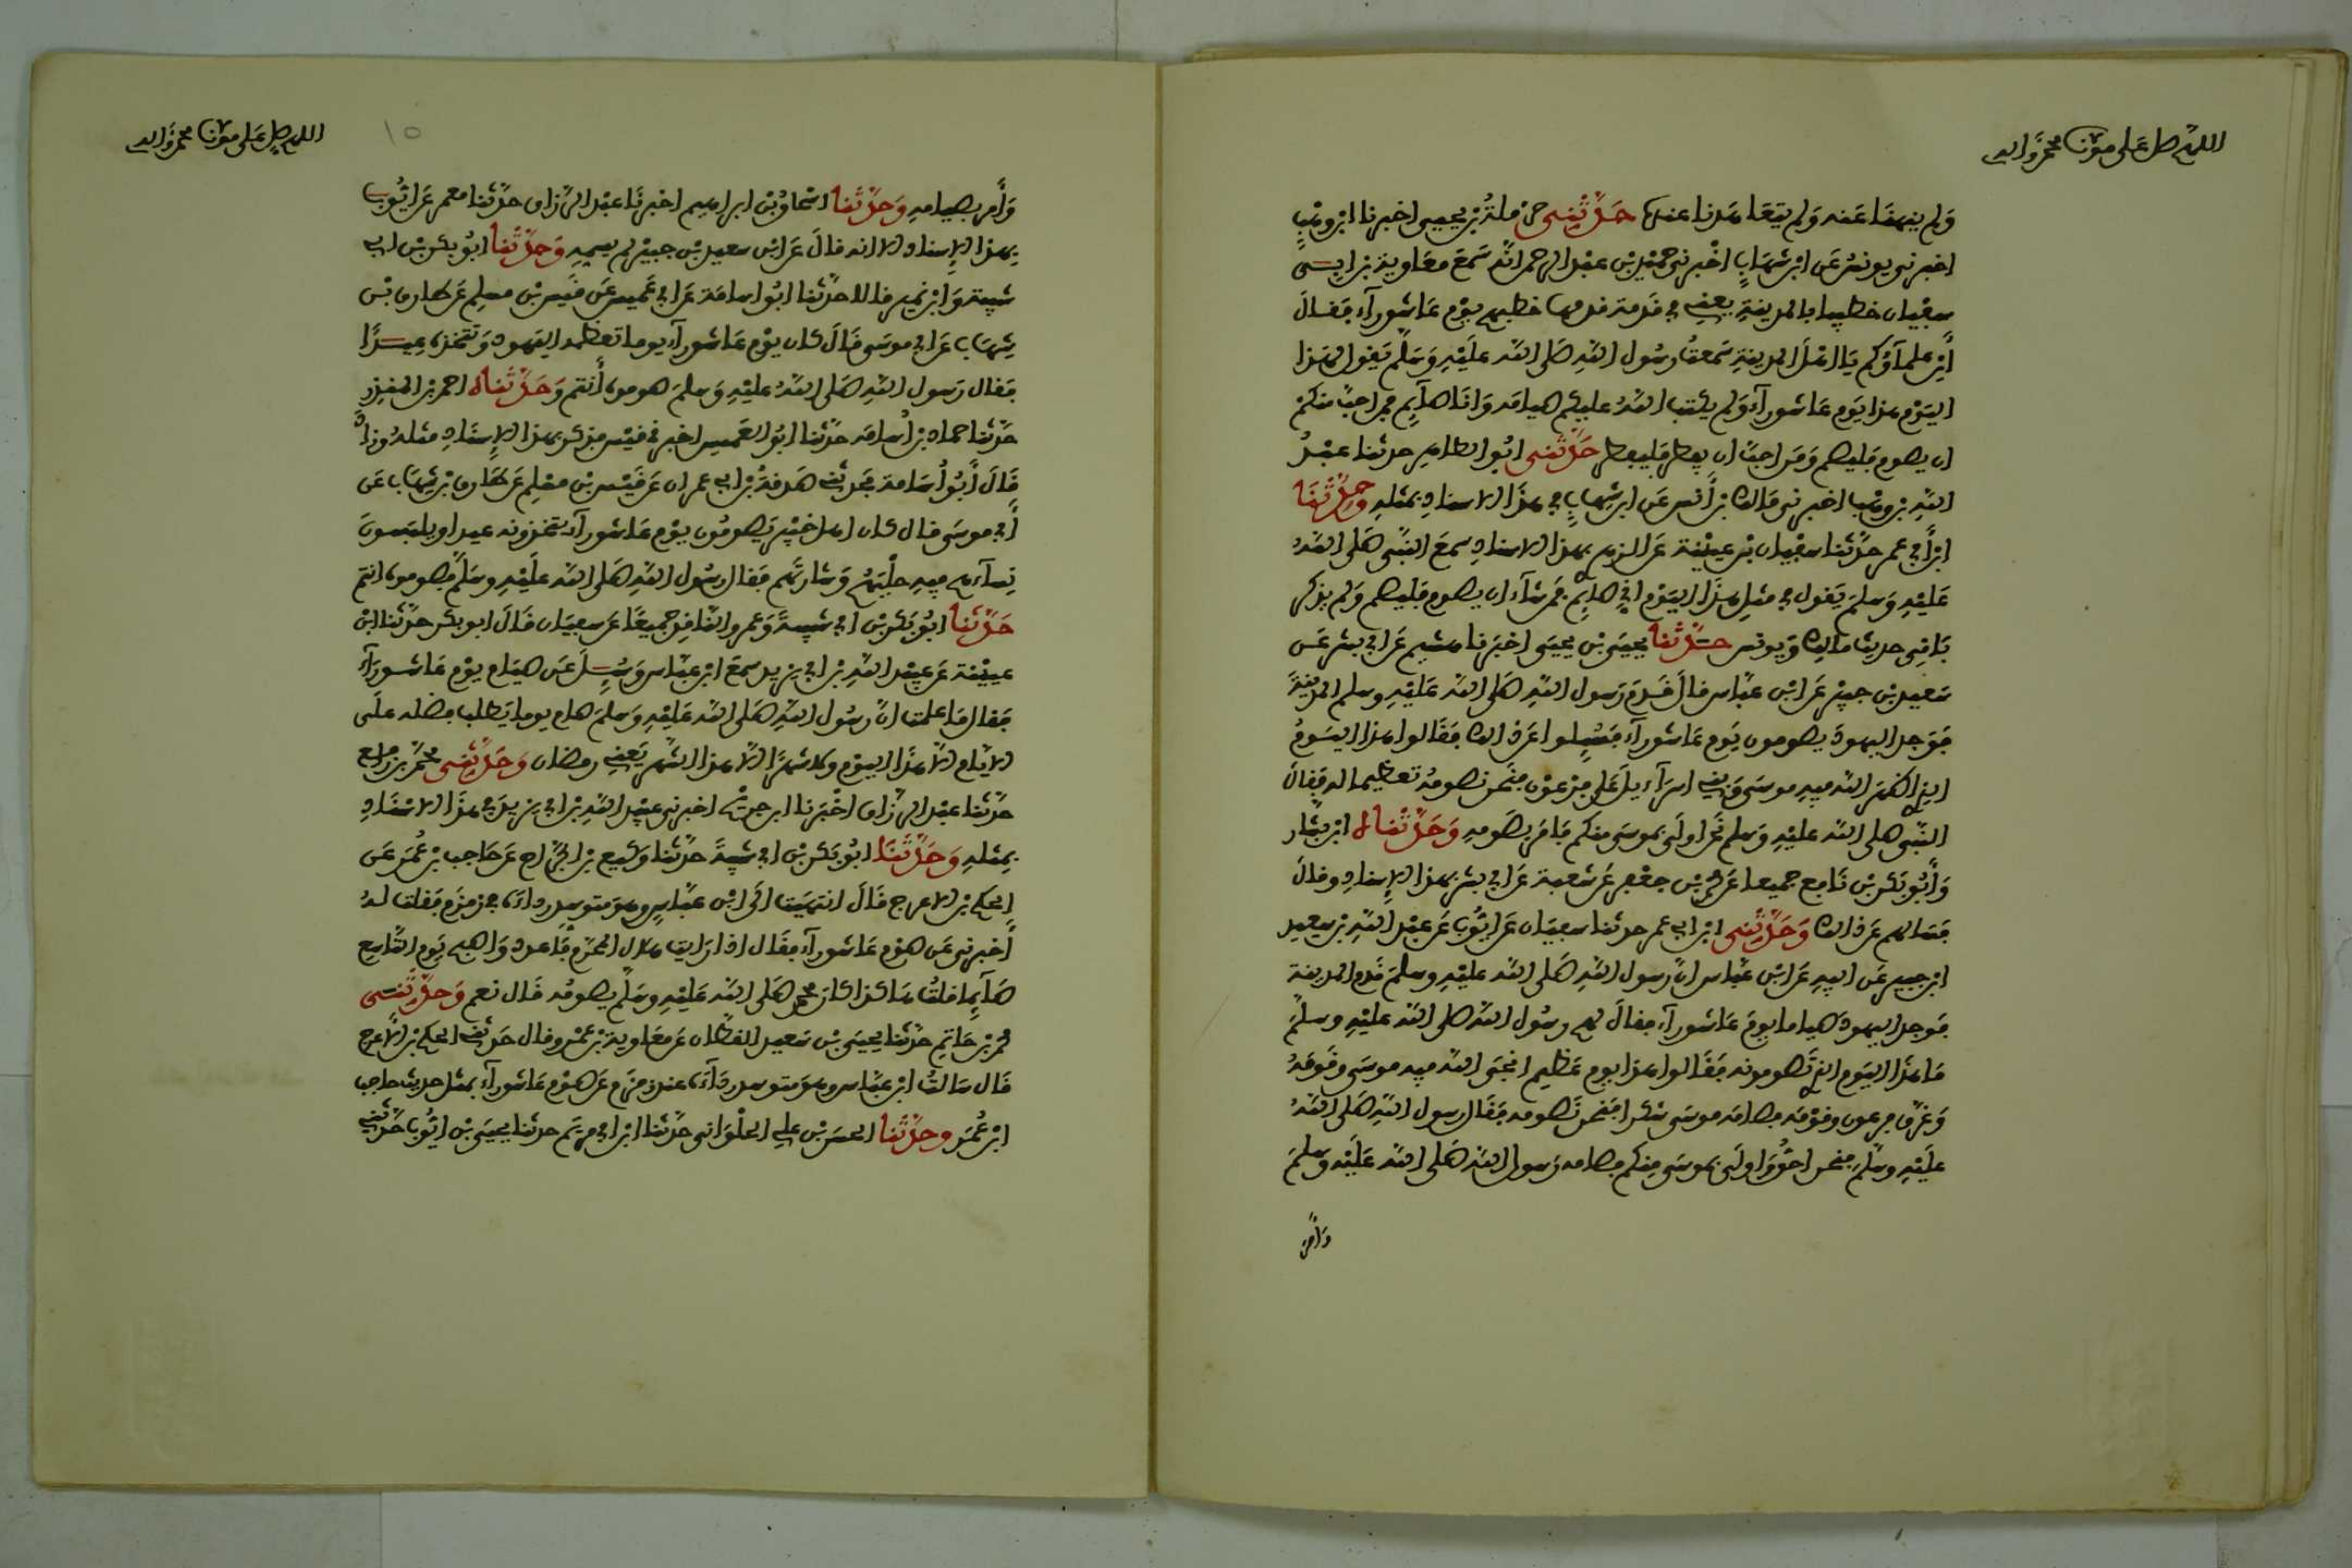 اللهم صل على مولانا محمد وآله
وَلم ينهنا عَنه وَلم يتعَاهَدنا عنده حَدَّثَنِى حَرْملَةُ بْن يحيى اخبرنا ابْن وهْبٍ
اخبرنى يونسُ عَن ابْن شهَابٍ اخْبرنى حُمَيْد بْن عبْد الرحمن انَّه سَمعَ معَاوية بْن ابى
سفْيان خطيبا بالمدينةِ يعنى فى قَدمَة قدمها خطبهم يوْم عَاشورآء فقَالَ
أيْن علمآؤكم يَا اهْلَ المدينةِ سَمعتُ رسُول اللهِ صَلى الله علَيْهِ وَسَلَّم يَقول لهَذا
اليَوْم هذا يَوم عَاشورآءَ وَلم يكْتب اللهُ عليكم صيامَه وَانَا صآيِم فمن احبَّ منكمْ
ان يصوم فَليصُم وَمَن احبَّ ان يفطر فَليفطر حَدَّثَنِى ابُو الطاهر حدثنا عبْدُ
اللهِ بْن وهْب اخبرنى مَالك بْن أَنس عَن ابن شِهابٍ فى هذَا الاسنادِ بمثلهِ وحَدَّثَنَا
ابْن أَبى عمر حدَّثنا سفْيان بْن عيينْة عَن الزهرى بهذا الاسنادِ سمعَ النَّبى صَلى اللهُ
عَليْهِ وَسلمَ يَقول فى مثلِ هذَا اليَوْم انِّى صآيِم فمَن شآءَ ان يصوم فليصم وَلم يذكر
بَاقِى حديث مالك وَيونس حَدَّثَنَا يحيَى بْن يحيَى اخبَرنا هشيم عَن أبى بشر عَن
سَعيد بْن جبيْر عَن ابْن عبَّاس قالَ قَدِمَ رَسول اللهِ صَلى الله عَليْهِ وسلم المدينَةَ
فَوَجد اليهودَ يصومون يَوم عَاشورآءَ فسُئِلوا عَن ذلك فقَالوا هذا اليَومُ
الذِى اظهَر الله فيهِ موسَى وَبنى اسرَآءيلَ عَلى فِرْعوْن فنَحن نصومُه تعظيما له فقَالَ
النَّبى صلى الله عليْهِ وسلم نَحْن اولَى بموسَى منكم فَامَر بصَومهِ وَحَدَّثَنَاه ابْن بشَّار
وَأَبُو بَكر بْن نَافع جميعا عَن محمد بْن جعْفر عَن شعبة عَن ابى بشر بهذا الإسنادِ وقالَ
فسَالهم عَن ذلك وَحَدَّثَنِى ابْن أبى عمر حدثنا سفيَان عَن ايُّوبَ عَن عبْد اللهِ بْن سعيد
ابْن جبير عَن ابيهِ عَن ابْن عبَّاس انَّ رَسول اللهِ صَلى الله عليْهِ وسلمَ قَدم المدينة
فوَجد اليهودَ صياما يومَ عَاشورآءَ فقالَ لهم رسُول الله صلى الله عليْهِ وسلمَ
مَا هذَا اليَوم الذِى تَصومونه فقَالوا هذا يوم عَظيم انجَى الله فيه موسَى وقَومَهُ
وَغرَّق فرعون وقوْمَه فصَامَه موسَى شكرا فنَحن نَصومه فقَال رسول اللهِ صَلى اللهُ
علَيْهِ وسَلَّمَ فنحن احَقُّ وَاولَى بموسَى مِنكم فصامه رَسول الله صَلى الله عَليْه وَسلمَ
وَأَمر
اللهم صل على مولانا محمد وآله
١٥
وَأَمر بصيامهِ وَحَدَّثَنَا اسْحاق بْن ابراهيم اخبرنَا عبْد الرَّزاق حدَّثنا معمر عَن ايُّوبَ
بهذا الإسناد الا انه قالَ عَن ابْن سعيد بْن جبيْر لم يسمهِ وَحَدَّثَنَا ابُو بكر بْن ابى
شيبة وَابْن نمير قالا حدَّثنا ابُو اسامَة عَن ابى عُميس عَن قَيس بْن مسلِم عَن طارق بْن
شِهَاب عَن ابى موسَى قَالَ كان يوْم عَاشورآء يوما تعظمه اليَهود وَتتخذه عِيدًا
فقال رَسول اللهِ صَلى اللهُ عليْهِ وَسلمَ صوموه أَنتم وَحَدَّثَنَاه احمد بْن المنذِرِ
حَدَّثنا حماد بْن أسامَه حدَّثنا ابُو العُميس اخبرنى قيْس فذكر بهذا الإسنَادِ مثلهُ وزادَ
قَالَ أَبُو أسَامة فحدثنى صَدقة بْن ابى عمران عَن قَيْس بْن مسْلِم عَن طَارق بْن شهَاب عَن
أَبى موسَى قال كان اهل خيْبَر يَصومُون يوْم عَاشورآءَ يتخذونه عيدا ويلبسونَ
نِسآءهم فيهِ حلْيَهُمْ وَشارتَهم فقال رسُول اللهِ صَلى الله علَيْهِ وسَلَّم فصوموه انتم
حَدَّثَنَا ابُو بَكر بْن ابى شيبةَ وَعمرو النَّاقِد جميعًا عَن سفيَان قَالَ ابو بكر حدَّثنا ابْن
عيينْة عَن عبيْد اللهِ بْن ابى يزيد سمعَ ابْن عبَّاس وَسُئِلَ عَن صيَام يوْم عَاشورَآءَ
فقال مَا علمت انَّ رَسُول اللهِ صَلى الله عَليْهِ وَسلمَ صام يوما يَطلب فضله علَى
الايَّام الَّا هذَا اليوْم ولا شهرًا الَّا هذا الشَّهر يَعنى رمضان وَحَدَّثَنِى محمَّد بْن رَافع
حدَّثنا عبْد الرزَّاق اخْبَرنا ابن جريْج اخبرنى عبيْد اللهِ بْن ابى يزيدَ فى هذَا الاسْنَادِ
بمثلهِ وَحَدَّثَنَا ابُو بَكر بْن ابى شيبةَ حدَّثنا وَكيع بْن الجَرَّاح عَن حَاجب بْن عُمَر عَن
الحكم بْن الاعرج قَالَ انتهيَت الَى ابْن عبَّاسٍ وهوَ متوسِد رداءَه فى زمزَم فقلت لهُ
أخبرنى عَن صَوْم عَاشورآءَ فقَال اذا رَايت هلال المحرَّم فَاعدد وَاصبِح يَوم التَّاسِع
صَآيِما قلتُ هَاكذا كان محمد صَلى الله عَليْهِ وسَلَّم يصومُه قَال نعم وَحَدَّثَنِى
محمد بْن حَاتِم حَدَّثنا يحيَى بْن سَعيد القطَّان عَن معَاوية بْن عَمْرو قال حَدثنى الحكم بْن الاعرج
قَال سَالتُ ابْن عبَّاس وهوَ متوسد ردَآءَه عند زمزَم عَن صوْم عَاشورآءَ بمثل حديث حاجب
ابْن عُمَر وحَدَّثَنَا الحسَن بْن على الحلْوَانى حَدَّثنا ابْن ابى مريَم حدثنا يحيَى بْن ايُّوب حَدَّثنى